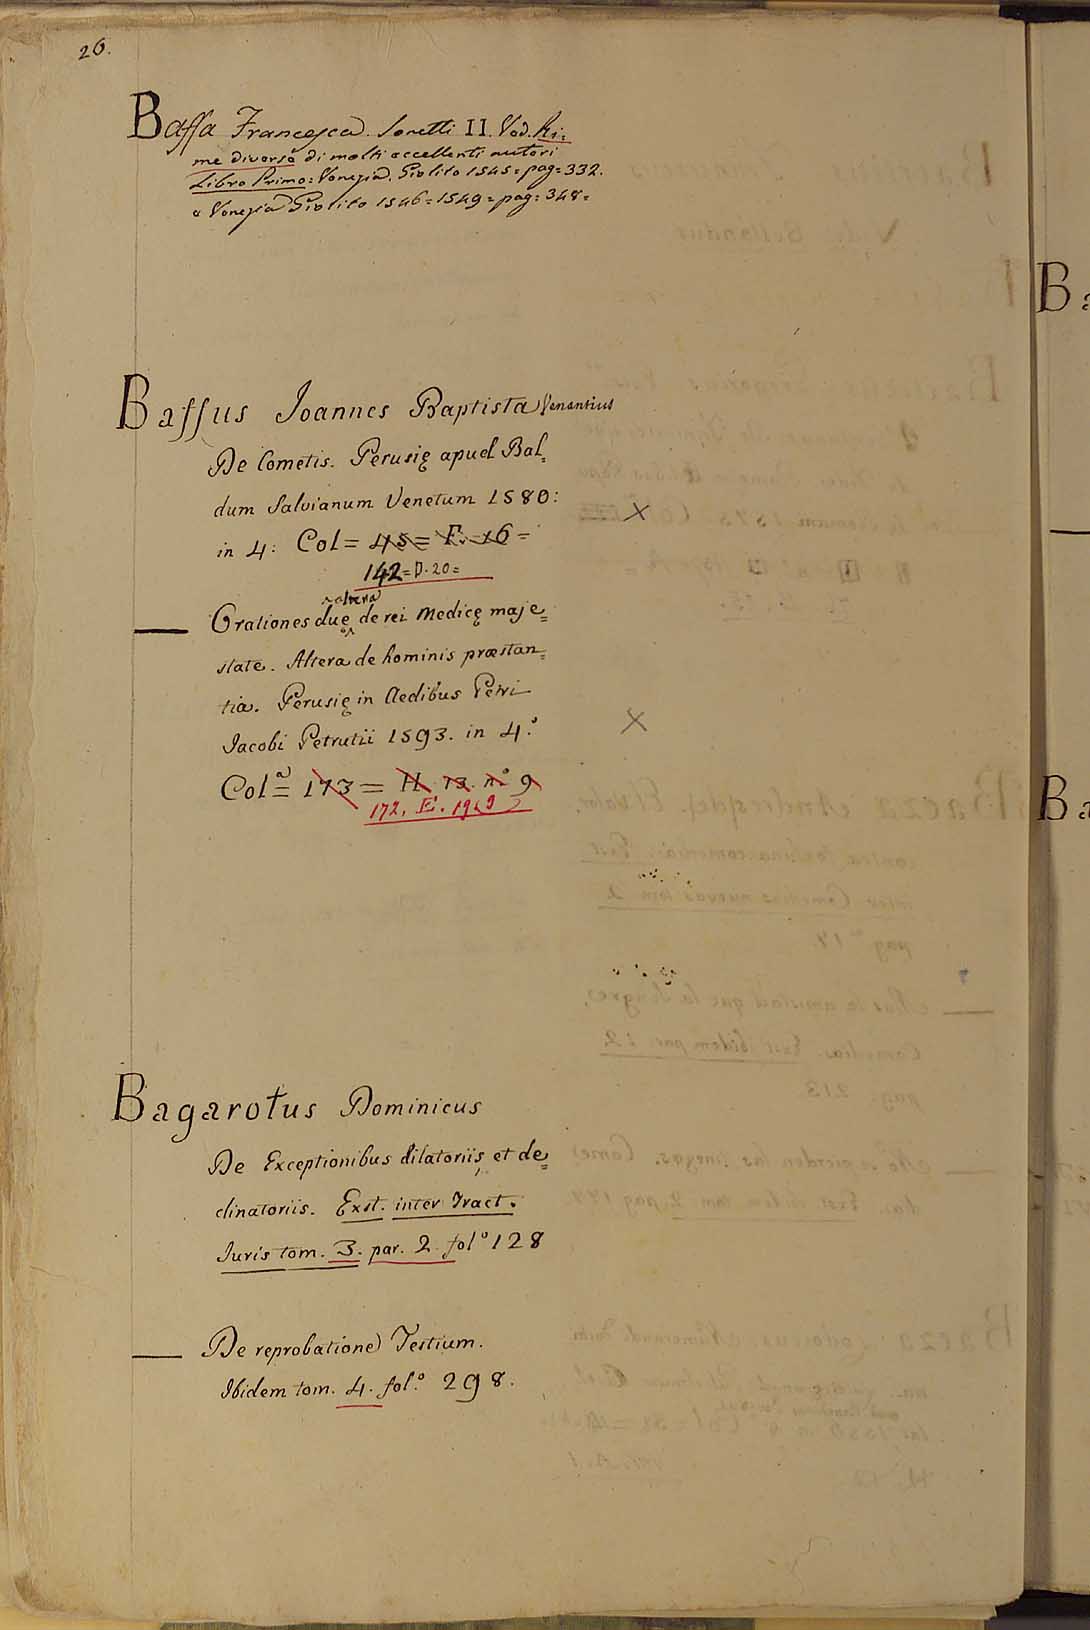 26.
Baffa Francesca. Sonetti II. Ved. Ri=
me diverse di molti eccellenti autori
Libro Primo: Venezia. Giolito 1545= pag= 332.
e Venezia Giolito 1546=1549= pag= 348=
Baffus Joannes Baptista Venantius
De Cometis. Perusię apud Bal=
dum Salvianum Venetum 1580:
in 4: Col= 45= F. 16=
142=D.20=
altera
Orationes duę de rei Medicę maje=
state. Altera de hominis præstan=
tia. Perusię in Aedibus Petri
Jacobi Petrutii 1593. in 4.°
Col.ª= 173= H. 13. n° 9
172. E. 19
Bagarotus Dominicus
De Exceptionibus dilatoriis, et de=
clinatoriis. Exst. inter Tract.
Juris tom. 3. par. 2. fol° 128
— De reprobatione Testium.
Ibidem tom. 4. fol.° 298.
B
Ba